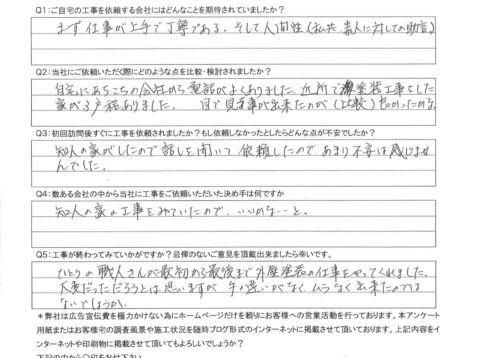 Q1：ご自宅の工事を依頼する会社にはどんなことを期待されていましたか？
まず仕事が上手で丁寧である。そして人間性(私共、素人に対しての助言)
Q2：当社にご依頼いただく際にどのような点を比較・検討されましたか？
自宅にあちこちの会社から電話がよくありました。近所で塗装工事をした
家が3戸程ありました。 目で見る事が出来たのが(比較)良かったから。
Q3：初回訪問後すぐに工事を依頼されましたか？もし依頼しなかったとしたらどんな点が不安でしたか？
知人の家がしたので話しを聞いて依頼したのであまり不安は感じませ
んでした。
Q4：数ある会社の中から当社に工事をご依頼いただいた決め手は何ですか
知人の家の工事をみていたので、いいかな－と。
Q5：工事が終わってみていかがですか？忌憚のないご意見を頂戴出来ましたら幸いです。
ひとりの職人さんが最初から最後まで外壁塗装の仕事をやってくれました。
大変だっただろうとは思いますが 手の違いがなく、ムラなく出来たのでは
ないでしょうか。
＊弊社は広告宣伝費を極力かけない為にホームページだけを頼りにお客様への営業活動を行っております。本アンケート
用紙またはお客様宅の調査風景や施工状況を随時ブログ形式のインターネットに掲載させて頂いております。上記内容をイ
ンターネットや印刷物に掲載させて頂いてもよろしいでしょうか？
下記の中から○印をお付け下さい